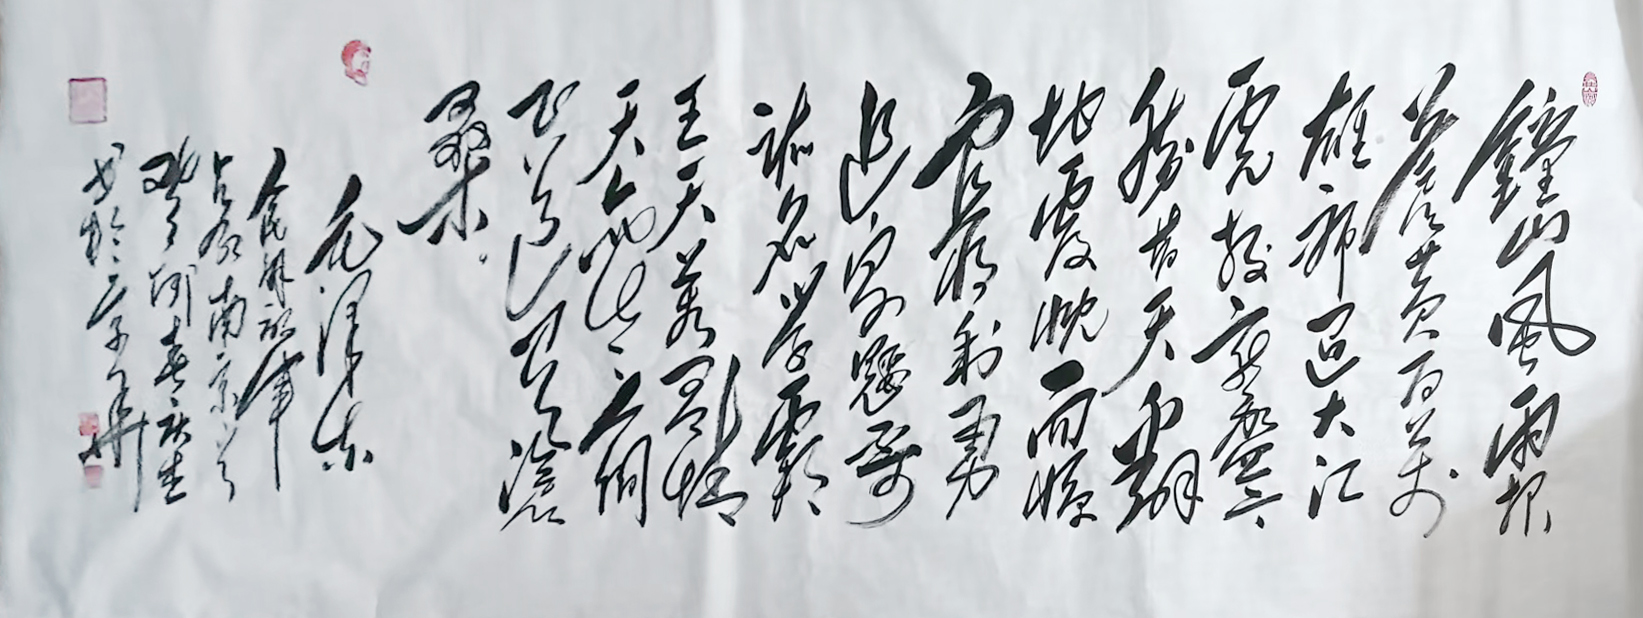 鍾山風雨起
蒼黃百萬
雄師過大江
虎踞龍盤今
勝昔天翻
地覆慨而慷
宜將剩勇
追窮寇不可
沽名學霸
王天若有情
天亦老人間
正道是滄
桑
毛澤东
人民解放軍
占領南京
书於